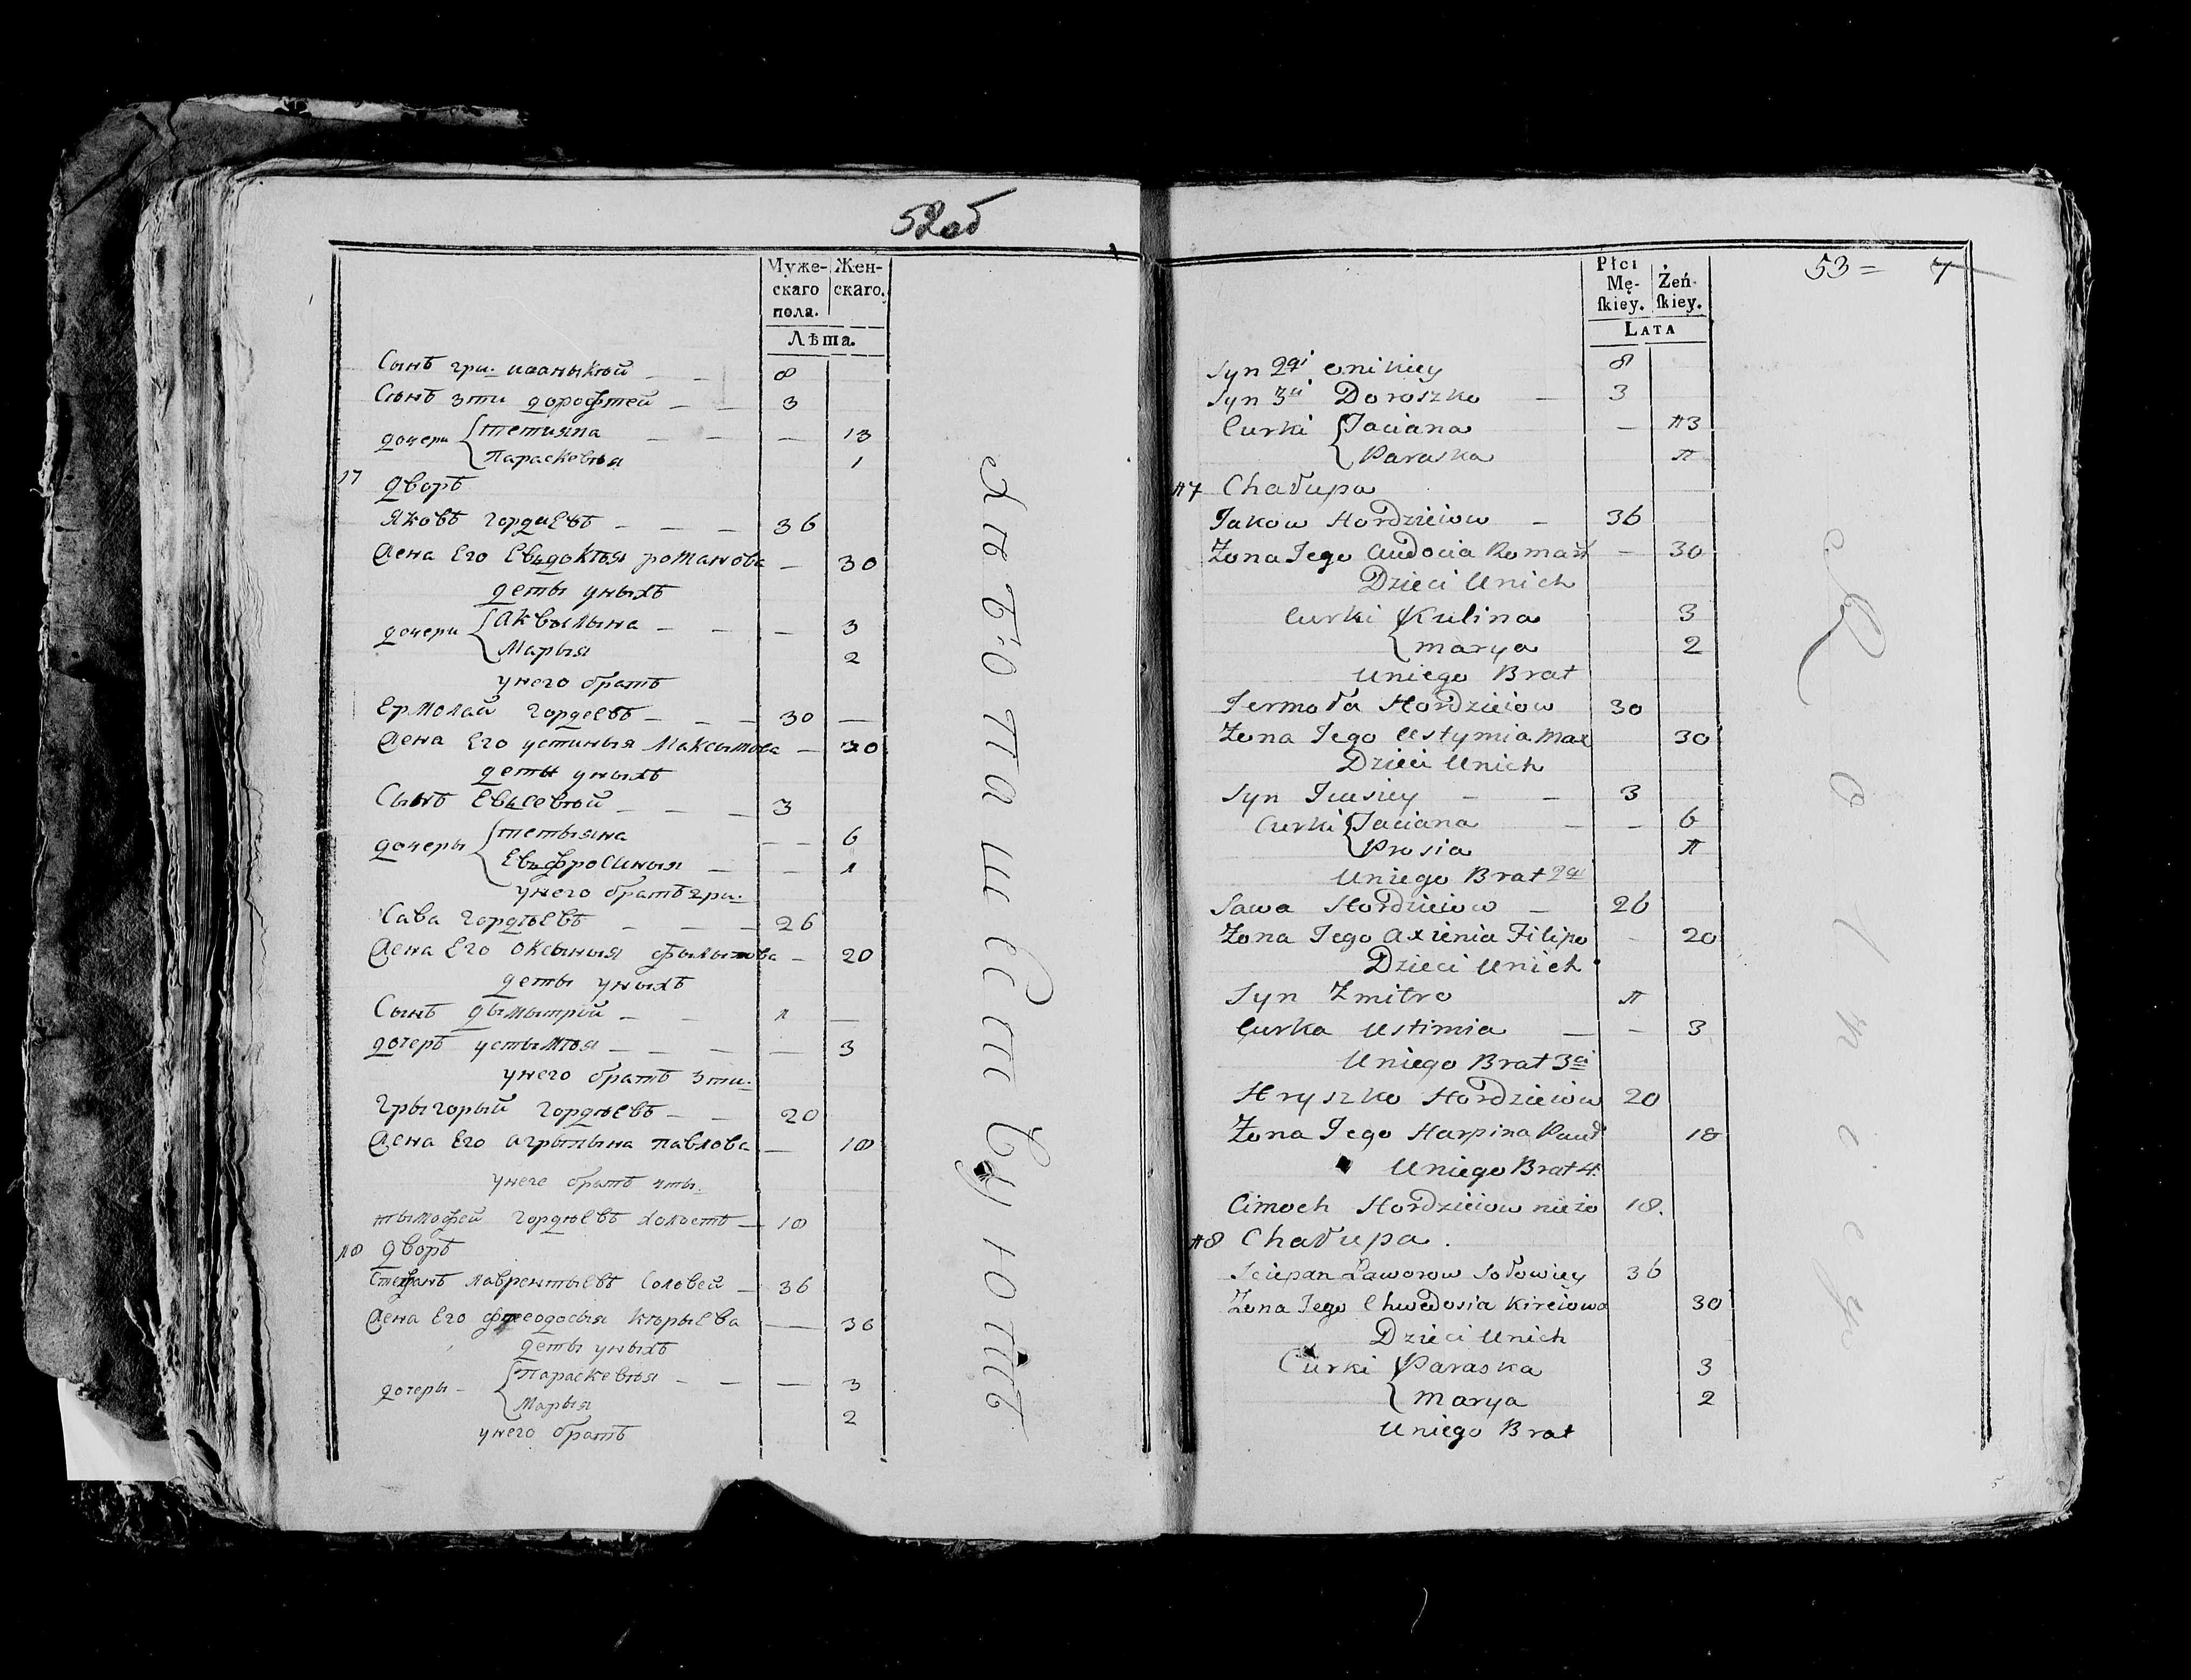 52об
Муже-
скаго
пола.
Жен-
скаго.
Лѣта.
Сынъ гри. иоаныкий — — 8
Сынъ 3ти дорофтей — — 3
дочери тетияна — — — 13
Парасковия 1
17 дворъ
Яковъ гордиевъ — — — 36
Жена Его Евъдокия романова — 30
деты уныхъ
дочери Аквылына — — — 3
Марыя 2
унего братъ
Ермолай гордеевъ — — — 30 —
Жена Его устинья Максымова — 30
деты уныхъ
Сынъ Евъсевий — — — 3
дочеры тетыяна — — 6
Евъфросиныя — — 1
унего братъ гри.
Сава гордиевъ — — — 26
Жена Его Оксыныя фылыпова — 20
деты уныхъ
Сынъ дымытрий — — 1 —
дочеръ устымия — — — — 3
унего братъ 3ти.
Грыгорый гордиевъ — — 20
Жена Его агрыпына павлова — 18
унего братъ 4ты.
тымофей гордиевъ холостъ — 18
18 дворъ
Стефанъ лаврентыевъ Соловей — 36
Жена Его феодосыя кирыева — 30
деты уныхъ
дочеры — Параскевия — — — 3
Марыя 2
унего братъ
53 = 7
Płci
Mę-
ſkiey.
Żeń-
ſkiey.
Lata
Syn 2gi onikiey 8
Syn 3ci Doroszko — 3
Curki Taciana — 13
Paraska 1
17 Chałupa
Jakow Hordzieiow — 36
Żona Jego Audocia Romań — 30
Dzieci Unich
Curki Kulina 3
Marya 2
Uniego Brat
Jermoła Hordzieiow 30
Żona Jego Ustymia Max 30
Dzieci Unich
Syn Jeusiey — — 3
Curki Taciana — — 6
Prosia 1
Uniego Brat 2gi
Sawa Hordzieiow — 26
Żona Jego Axienia Filipo — 20
Dzieci Unich
Syn Zmitro 1
Curka Ustimia — — 3
Uniego Brat 3ci
Hryszko Hordzieiow 20
Żona Jego Harpina Pauł 18
Uniego Brat 4.
Cimoch Hordzieiow nieżo 18.
18 Chałupa.
Sciepan Ławorow Sołowiey 36
Żona Jego Chwedosia Kireiowa 30
Dzieci Unich
Curki Paraska 3
Marya 2
Uniego Brat